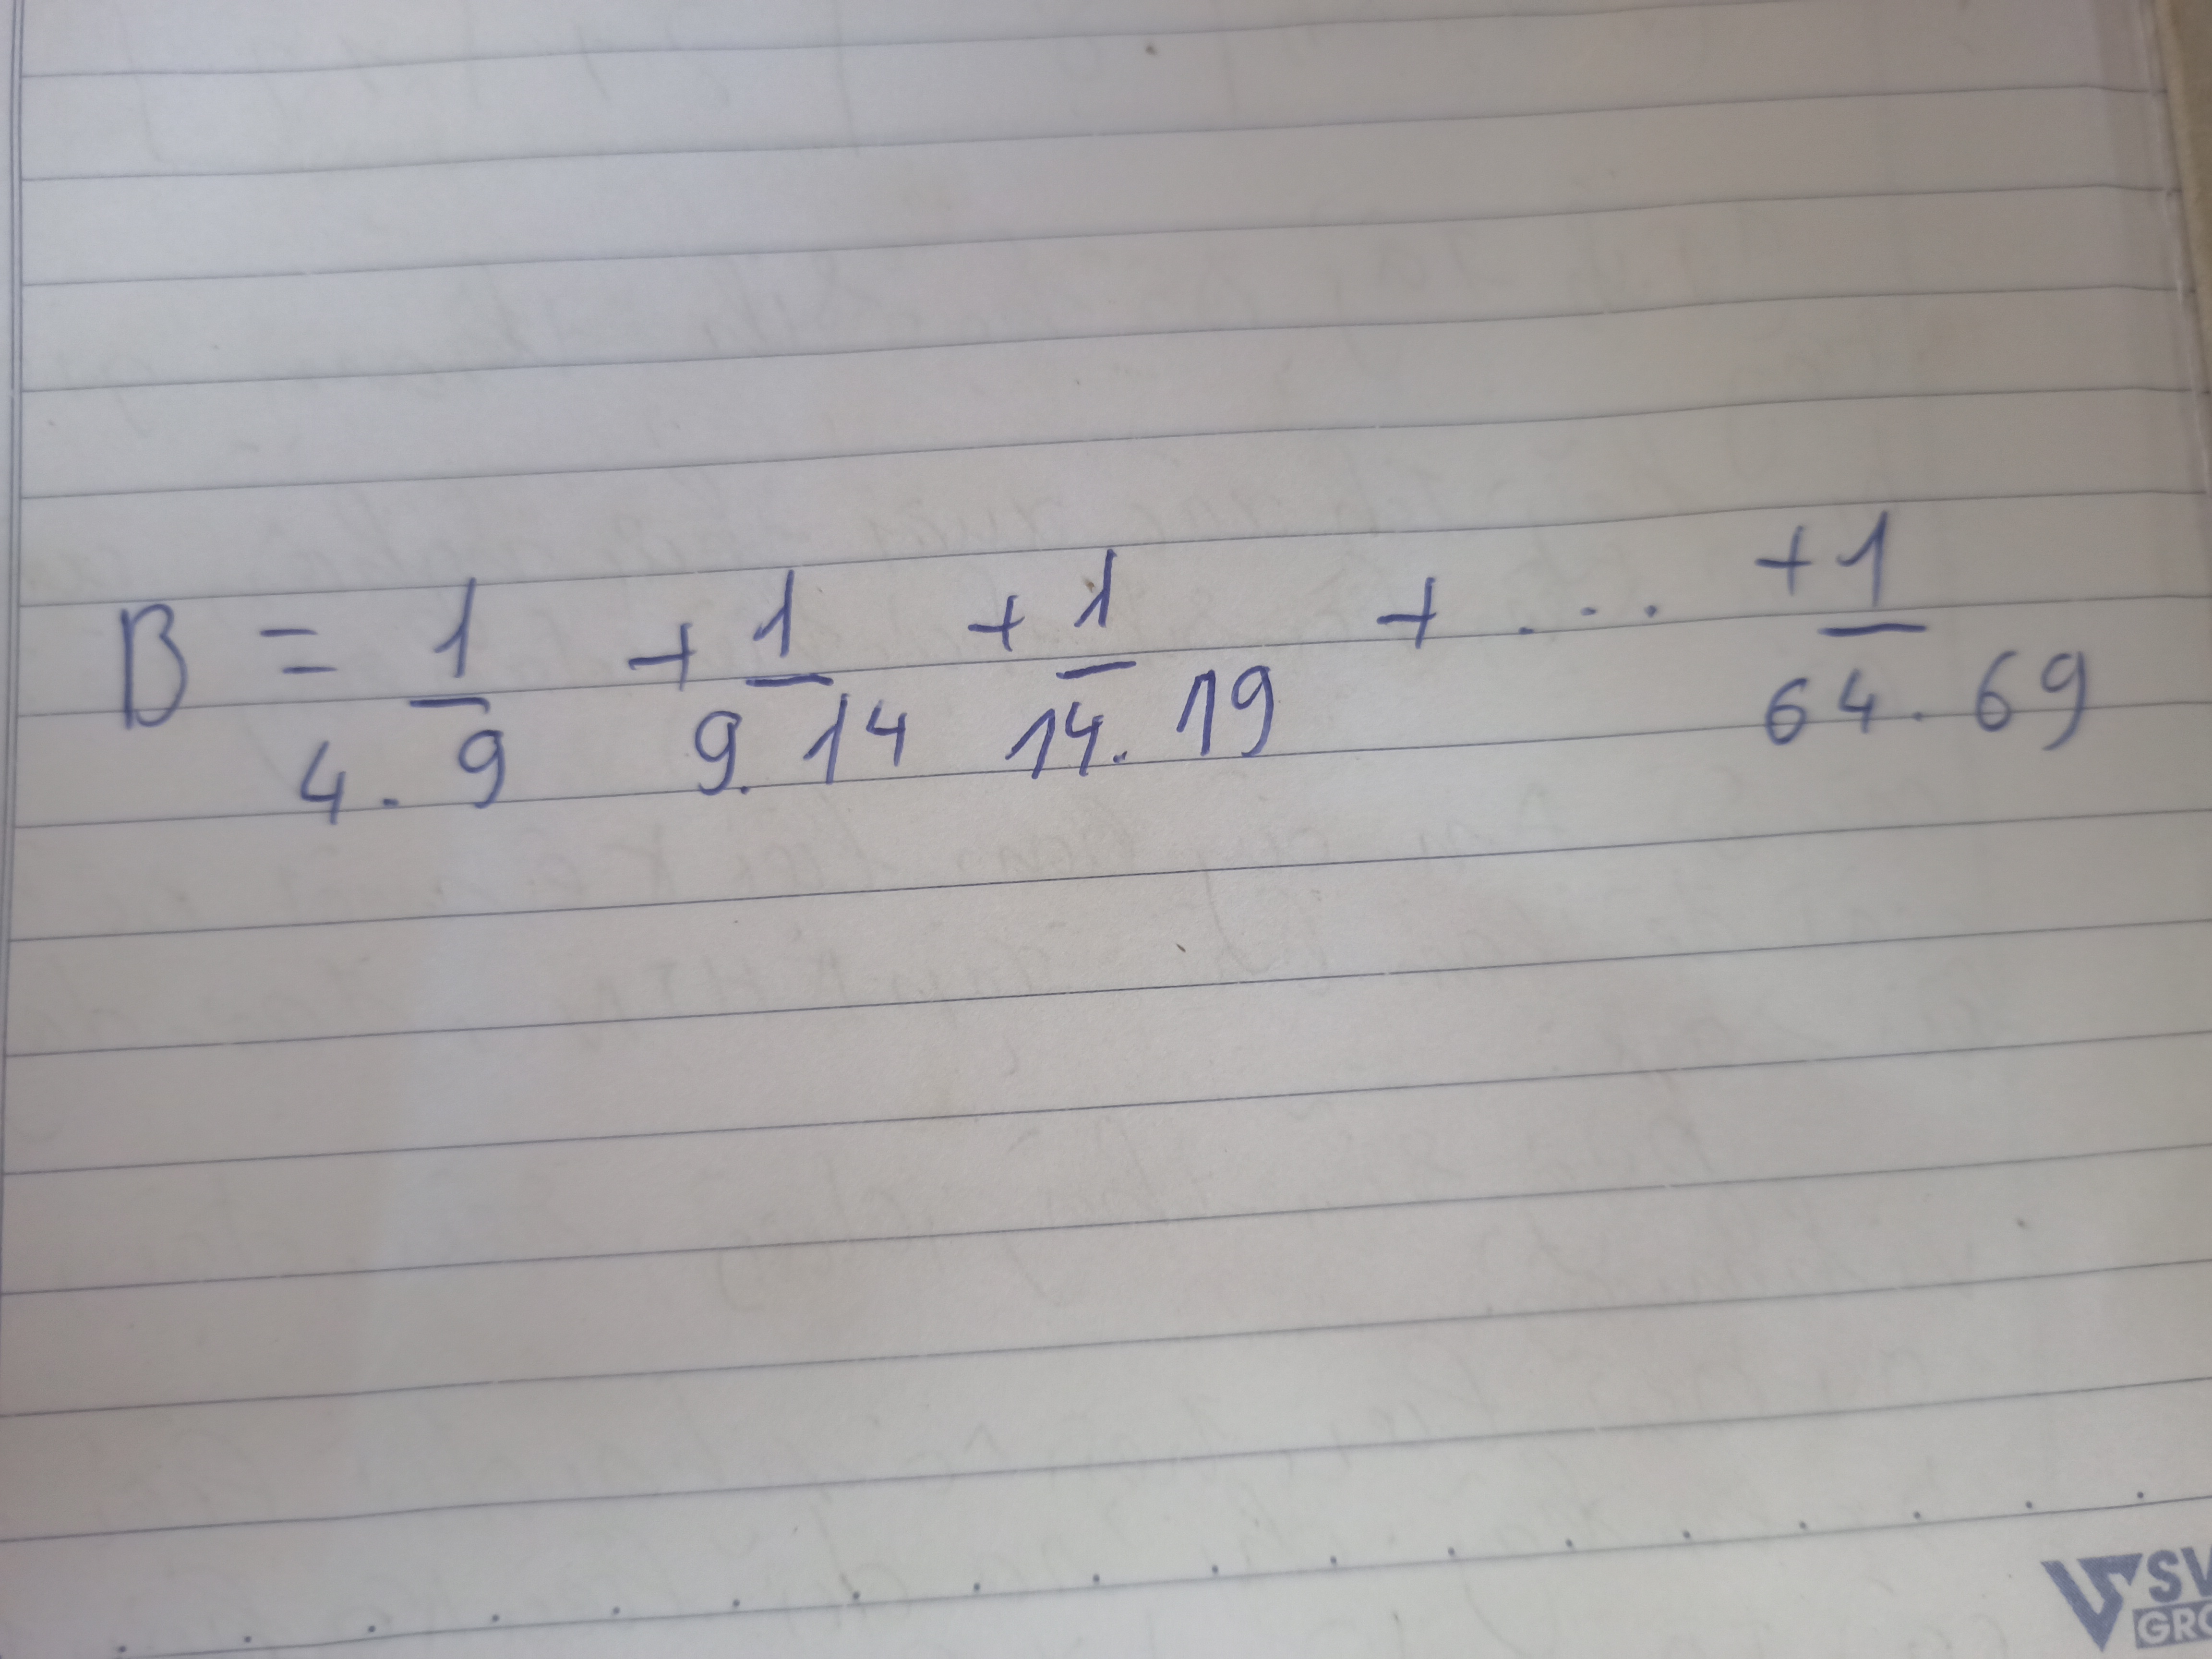 B = 1/4.9 + 1/9.14 + 1/14.19 + ... + 1/64.69
SV
GRO